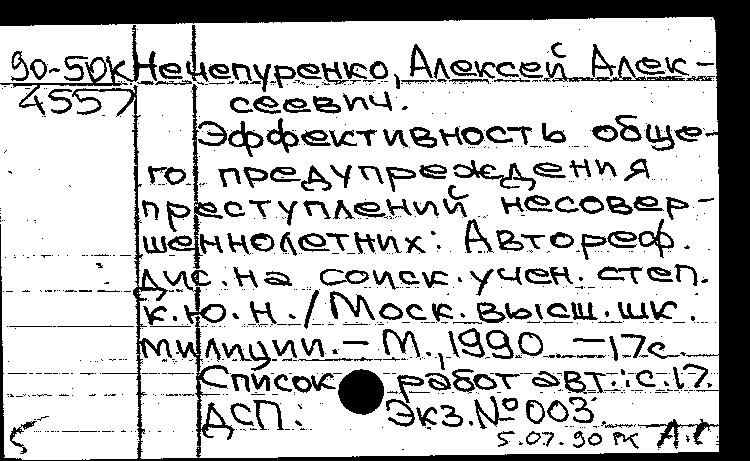 90-50К Нечепуренко, Алексей Алек-
4557 сеевич.
Эффективность обще-
го предупреждения
преступлений несовер-
шеннолетних: Автореф.
дис. на соиск. учен. степ.
к.ю.н. / Моск. высш. шк.
милиции. — М., 1990 — 17с.
Список работ авт.: с.17.
ДСП: Экз.№003.
5.07.90 РК А.С